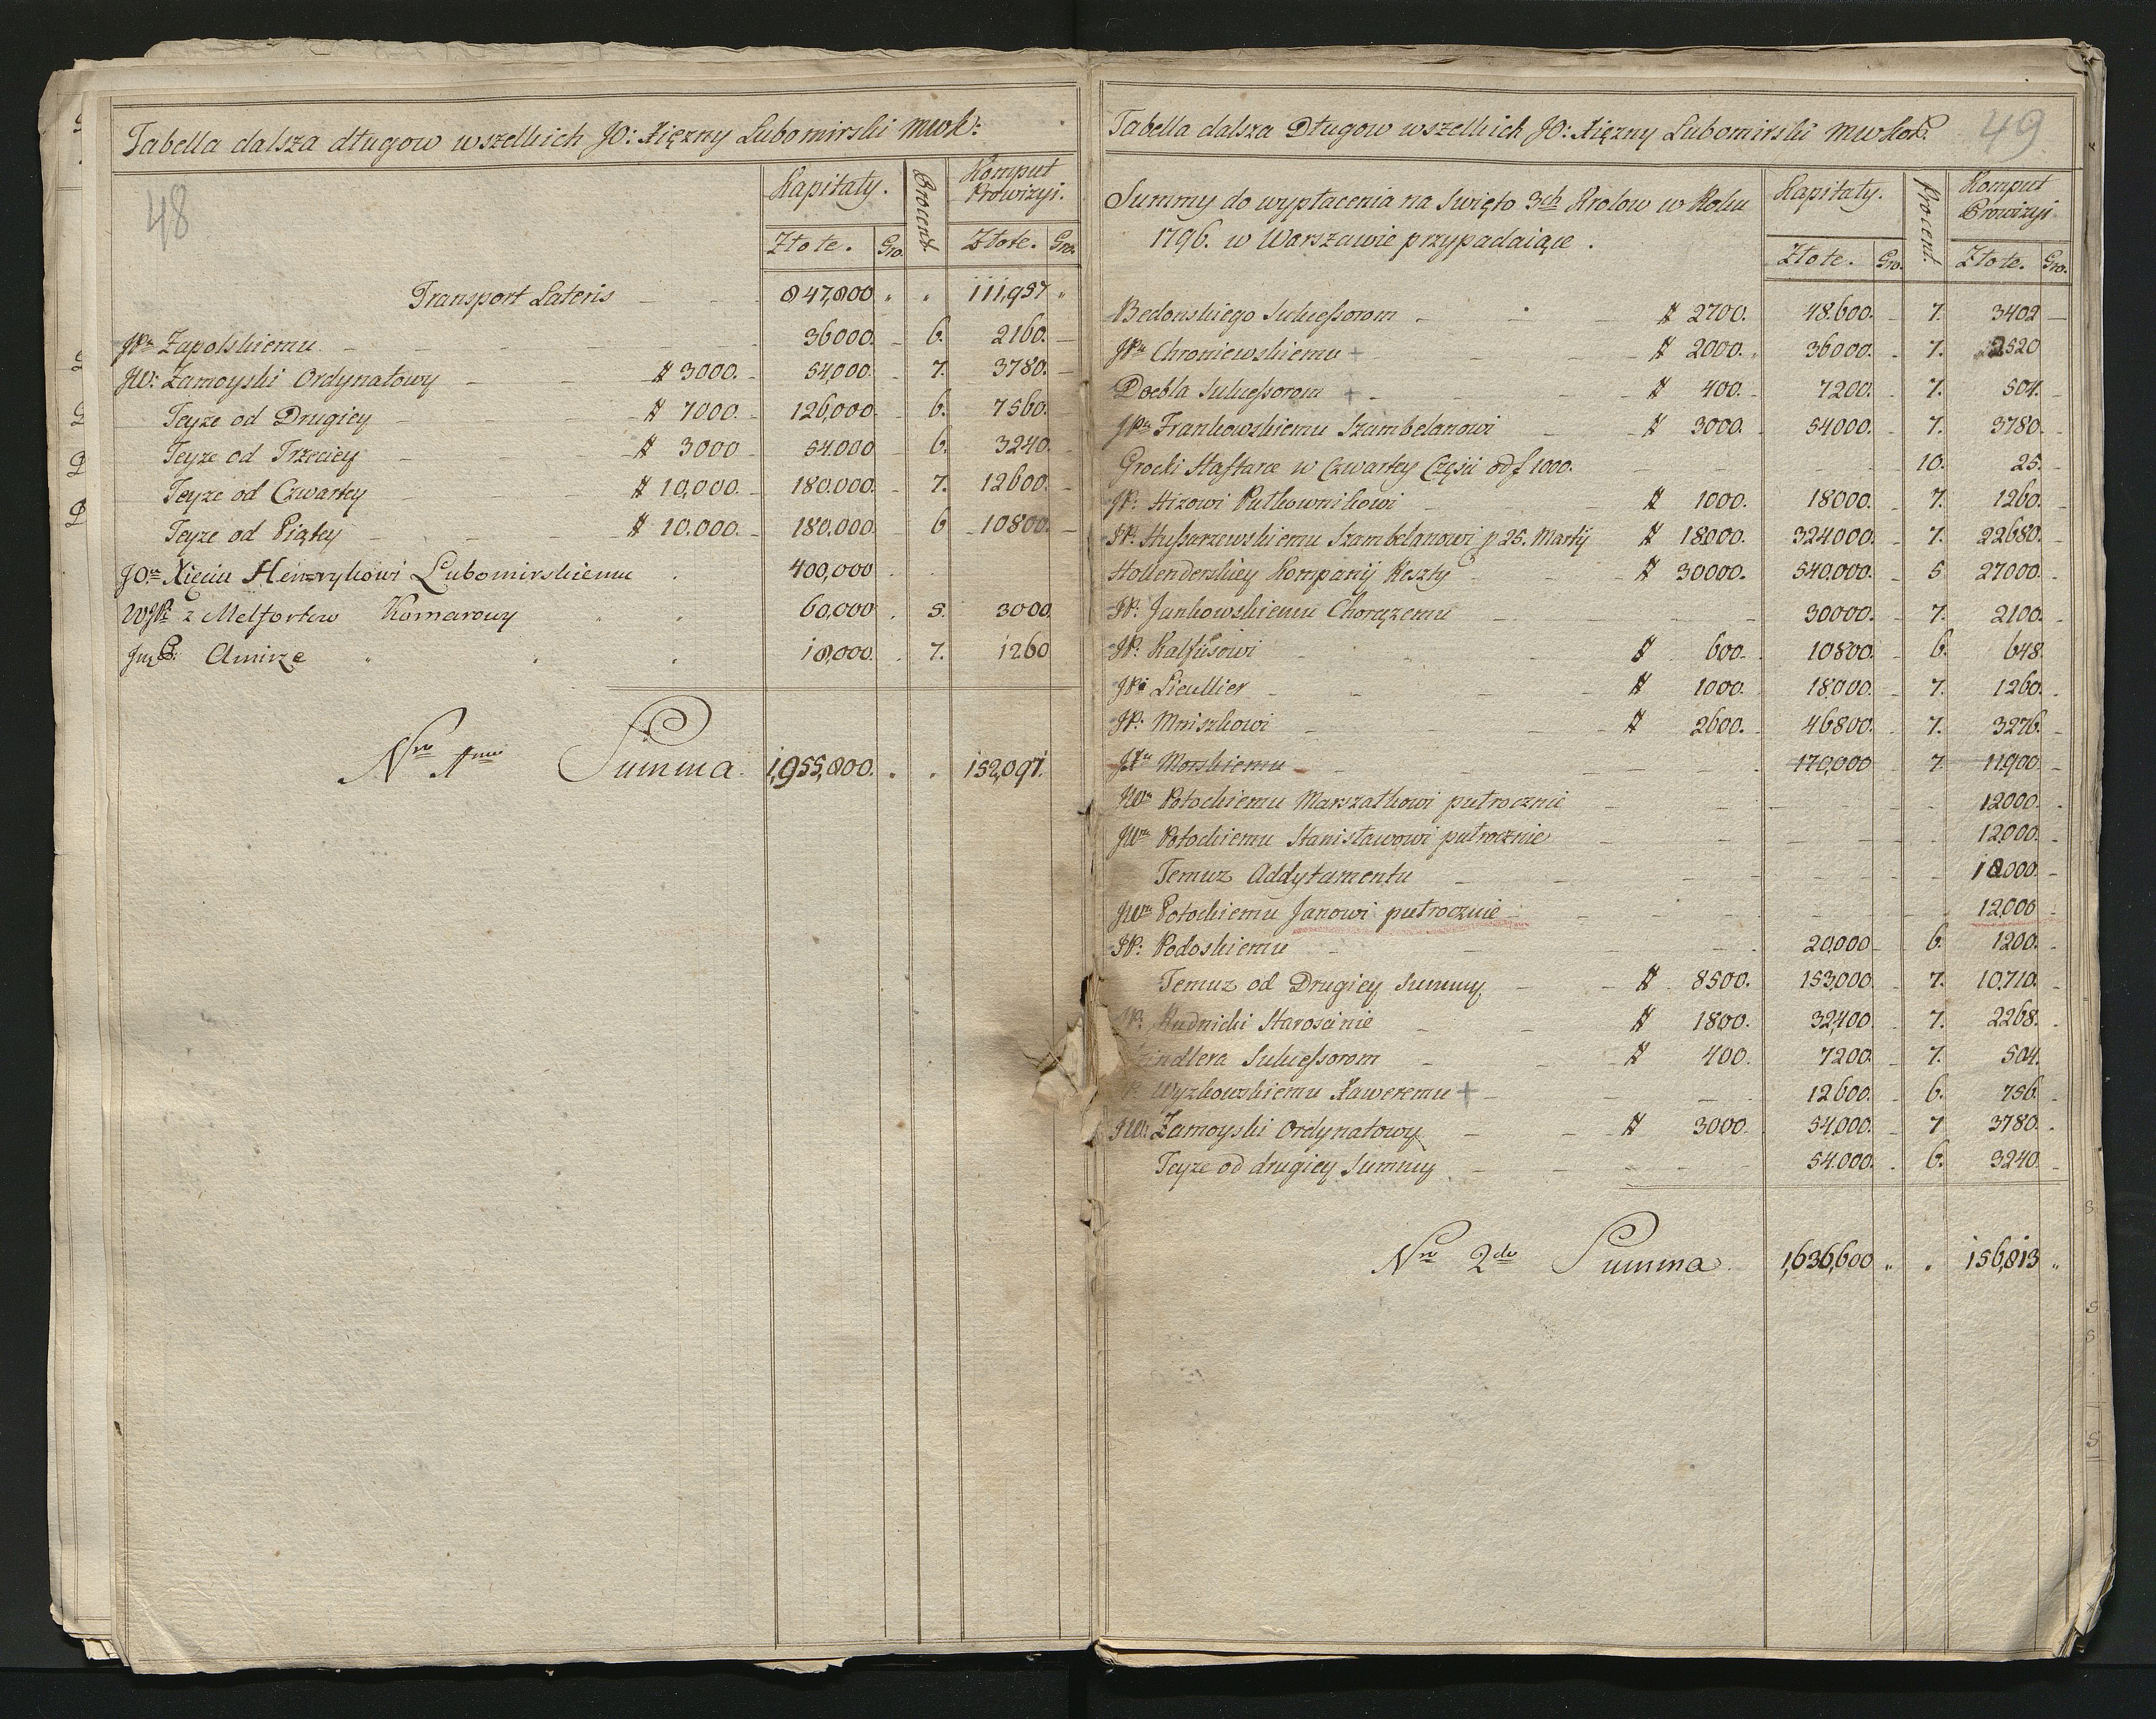 Tabella dalsza długow wszelkich JO: Xięzny Lubomirski mwk:
48
Kapitały. Procent Komput Prowizyi.
Złote. Gro. Złote. Gro.
Transport Lateris 847,800 " " 111,957 "
JPu Zapolskiemu 36000. 6. 2160.
JW: Zamoyski Ordynatowy # 3000. 54,000. 7. 3780.
Teyze od Drugiey # 7000. 126,000. 6. 7560.
Teyze od Trzeciey # 3000 54.000 6. 3240.
Teyze od Czwartey # 10,000. 180.000. 7. 12600.
Teyze od Piątey # 10.000. 180,000. 6 10800.
JOu Xięciu Henrykowi Lubomirskiemu 400,000
WJP: z Melfortow Komarowy 60,000 5. 3000.
Amirze 18,000. 7. 1260
Nro 1mo Summa. 1,955,800. 152,097.
Tabella dalsza Długow wszelkich JO: Xięzny Lubomirski mwkor. 49
Summy do wypłacenia na Swięto 3ch Krolow w Roku
1796. w Warszawie przypadaiące.
Kapitały. Procent. Komput Prowizyi
Złote. Gro. Złote. Gro.
Bedonskiego Sukceſsorom # 2700. 48.600. 7. 3402
JPu Chroniewskiemu + # 2000. 36000. 7. 2520
Doebla Sukceſsorom + # 400. 7200. 7. 504.
JPu Frankowskiemu Szambelanowi # 3000. 54000. 7. 3780.
Grocki Staſtarce w Czwartey Części od f 1000. 10. 25.
JP: Hizowi Pułkownikowi # 1000. 18000. 7. 1260.
JP: Huſsarzewskiemu Szambelanowi p 25. Martij # 18000. 324000. 7. 22680.
Hollenderskiey Kompanij Reszty # 30000. 540,000. 5 27000.
JP: Jankowskiemu Chorązemu 30000. 7. 2100.
JP: Kalfusowi # 600. 10800. 6. 648.
JPi Lieullier # 1000. 18,000. 7. 1260.
JP: Mniszkowi # 2600. 46800. 7. 3276.
JXu Morskiemu 170,000 7. 11,900.
JWu Potockiemu Marszałkowi pułrocznie 12000.
JWu Potockiemu Stanisławowi pułrocznie 12,000.
Temuz Addytamentu 18,000.
JWu Potockiemu Janowi pułrocznie 12,000
JP: Podoskiemu 20,000 6. 1200.
Temuz od Drugiey Summy # 8500. 153,000 7. 10,710.
JP: Rudnicki Starościnie # 1800. 32,400. 7. 2268.
indlera Sukceſsorom # 400. 7200. 7. 504.
P. Wyzkowskiemu Xaweremu + 12600. 6. 756.
JW: Zamoyski Ordynatowy # 3000. 54,000. 7 3780.
Teyze od drugiey Summy 54.000. 6. 3240.
Nro 2do Summa. 1,636,600 " " 156,813 "